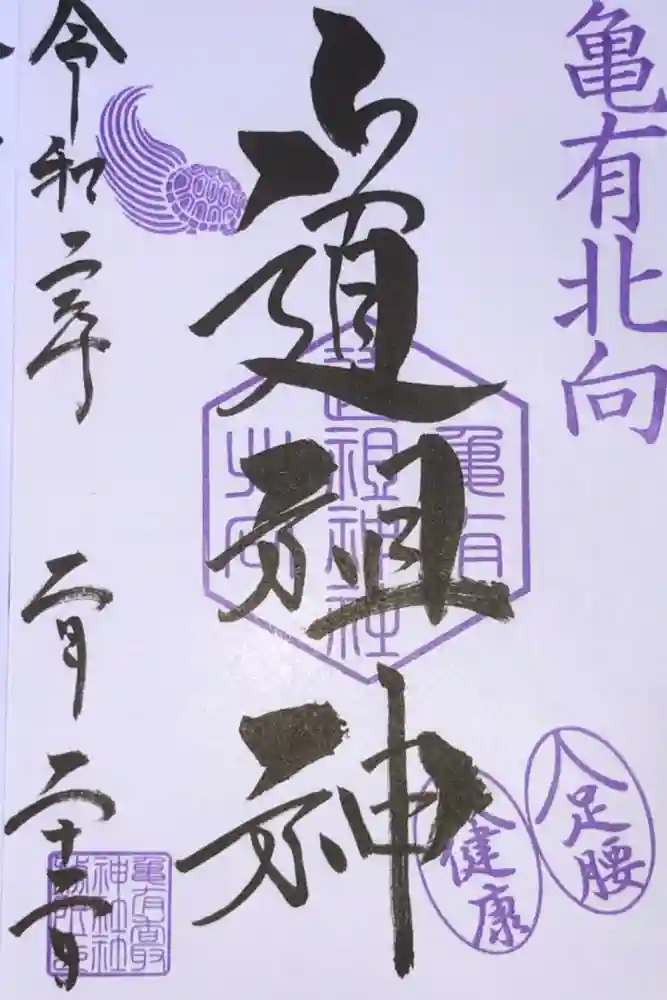 亀有北向
道祖神
令和二年 二月 二十二日
亀有
道祖神社
北向
足腰
健康
亀有香取
神社社
務所印